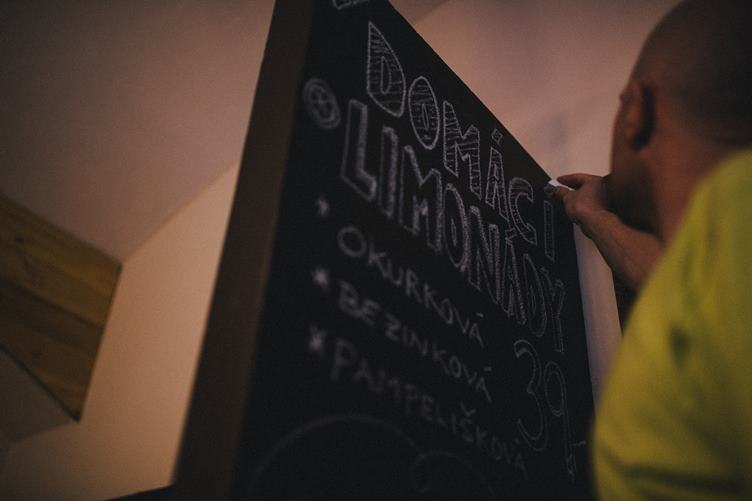 DOMÁCÍ
LIMONÁDY
* OKURKOVÁ
* BEZINKOVÁ
* PAMPELIŠKOVÁ
39,-